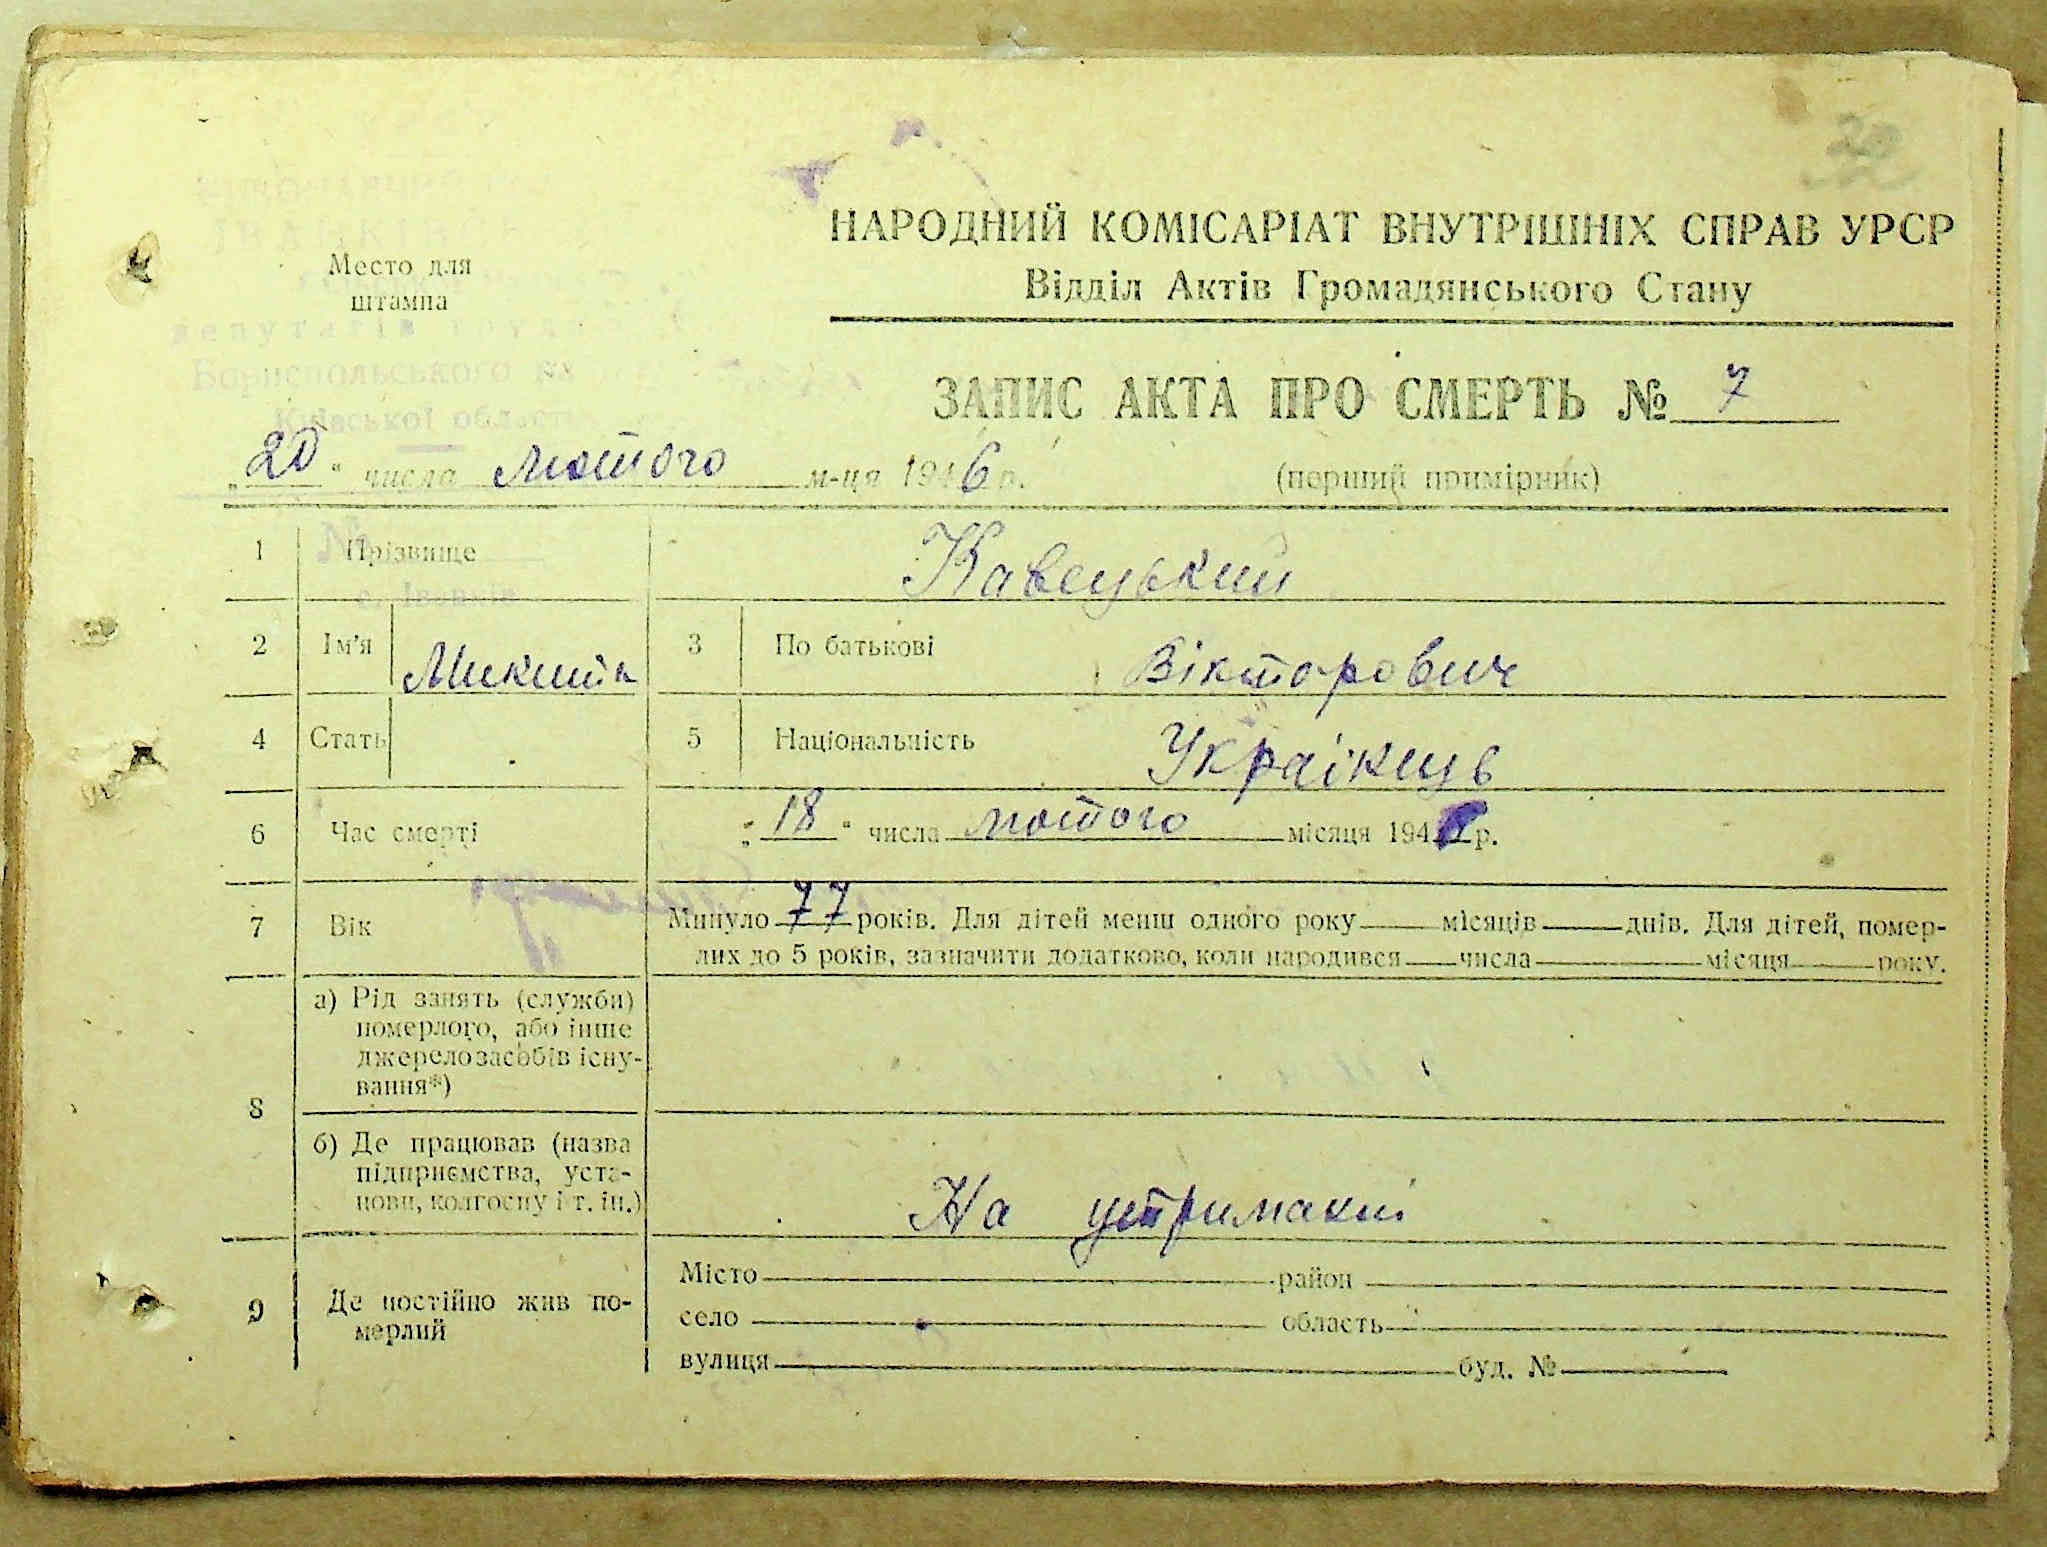 32
НАРОДНИЙ КОМІСАРІАТ ВНУТРІШНІХ СПРАВ УРСР
Відділ Актів Громадянського Стану
Место для
штампа
депутатів
Бориспольського
Київської області
ЗАПИС АКТА ПРО СМЕРТЬ № 7
„20“ числа лютого м-ця 1946 р. (перший примірник)
1 Прізвище Кавецький
№
с. Іванків
2 Ім'я Микита 3 По батькові Вікторович
4 Стать 5 Національність Українець
6 Час смерті „18“ числа лютого місяця 194 р.
7 Вік Минуло 77 років. Для дітей менш одного року місяців днів. Для дітей, помер-
лих до 5 років, зазначити додатково, коли народився числа місяця року.
8 а) Рід занять (служби)
померлого, або інше
джерело засобів існу-
вання*)
б) Де працював (назва
підприємства, уста-
нови, колгоспу і т. ін.) На утриманні
9 Де постійно жив по-
мерлий
Місто район
село область
вулиця буд. №